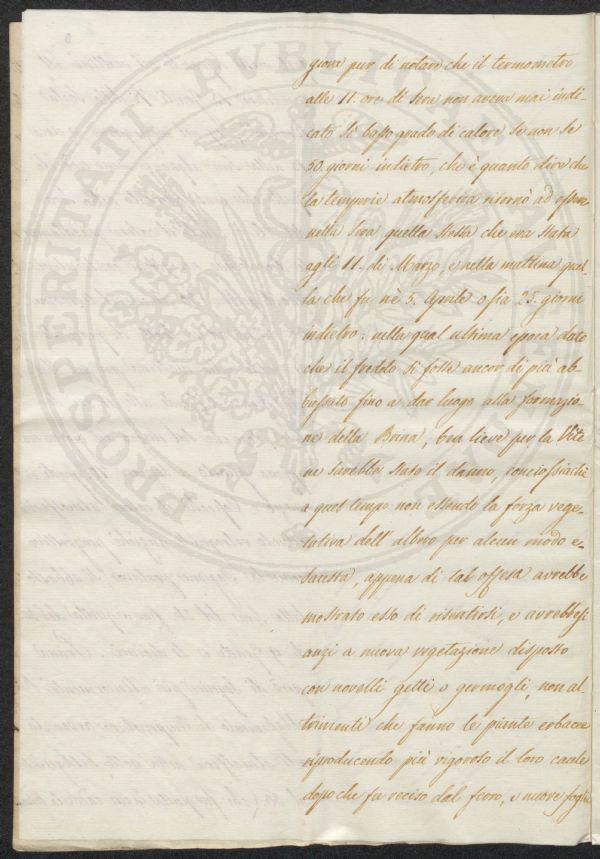 giova pur di notare che il termometro
alle 11. ore di sera non aveva mai indi-
cato sì basso grado di calore se non se
50. giorni indietro, che è quanto dire che
la temperie atmosferica ritornò ad essere
nella sera quella stessa che era stata
agli 11. di Marzo, e nella mattina quel-
la che fu ne' 5. Aprile o sia 25. giorni
indietro: nella qual ultima epoca dato
che il freddo si fosse ancor di più ab-
bassato fino a dar luogo alla formazio-
ne della Brina, ben lieve per la Vite
ne sarebbe stato il danno, conciossiachè
a quel tempo non essendo la forza vege-
tativa dell'albero per alcun modo e-
saltata, appena di tal offesa avrebbe
mostrato esso di risentirsi, e avrebbesi
anzi a nuova vegetazione disposto
con novelli getti o germogli, non al-
trimenti che fanno le piante erbacee
riproducendo più vigoroso il loro caule
dopo che fu reciso dal ferro, e nuove foglie
PROSPERITATI PUBLICAE